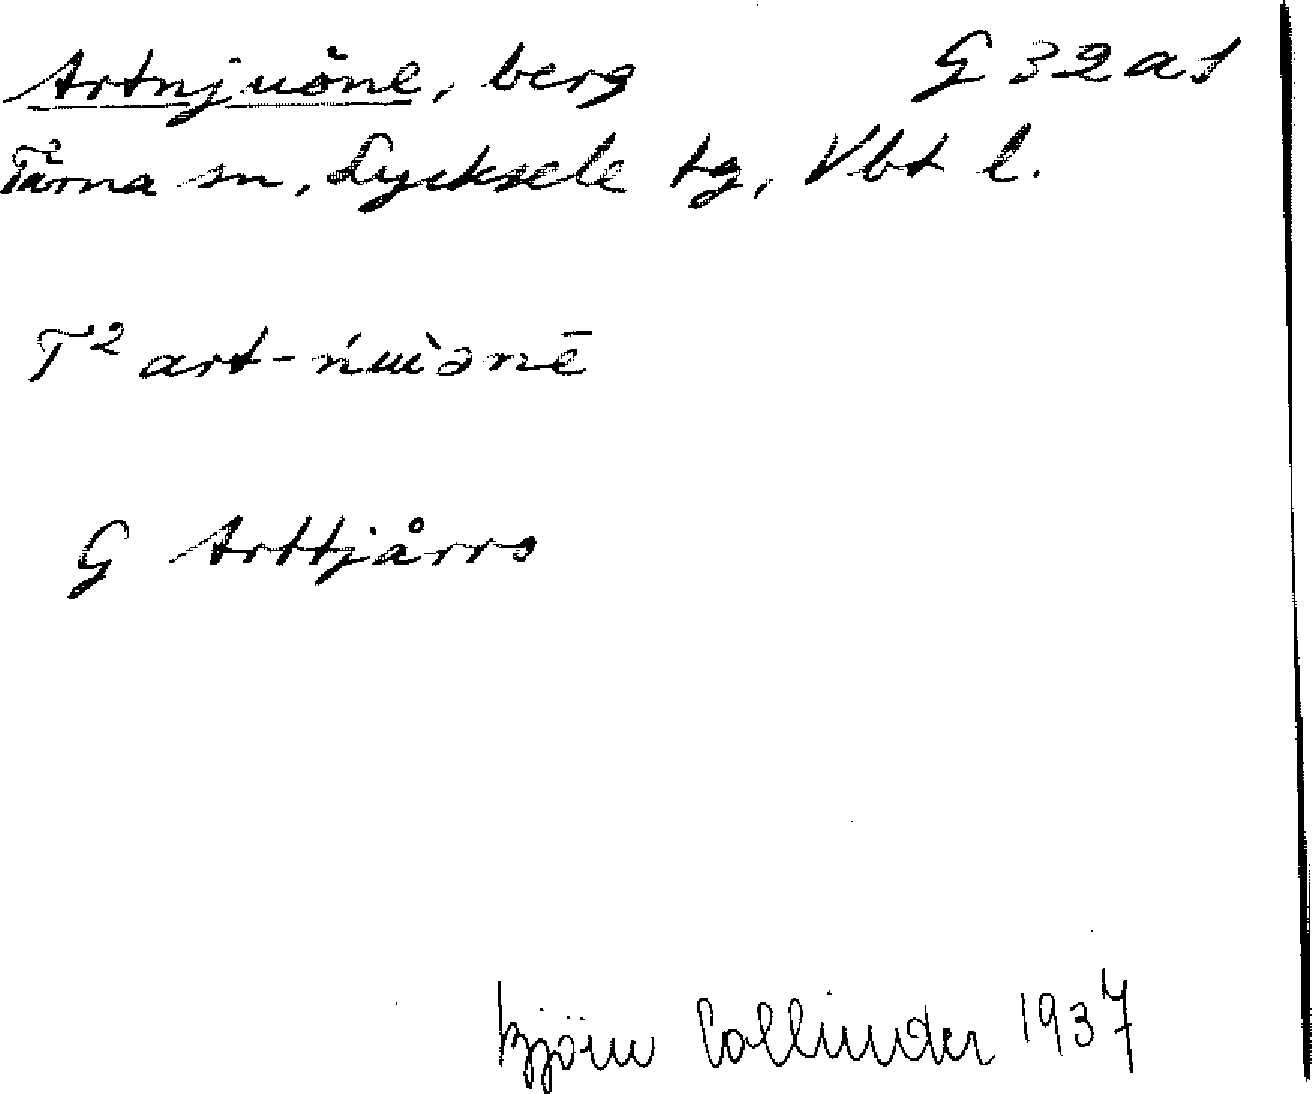 Artnjuöne, berg G 32 a1
Tärna sn, Lycksele tg, Vbt l.
T² art-ńɯ̀ənē
G Arttjårro
Björn Collinder 1937